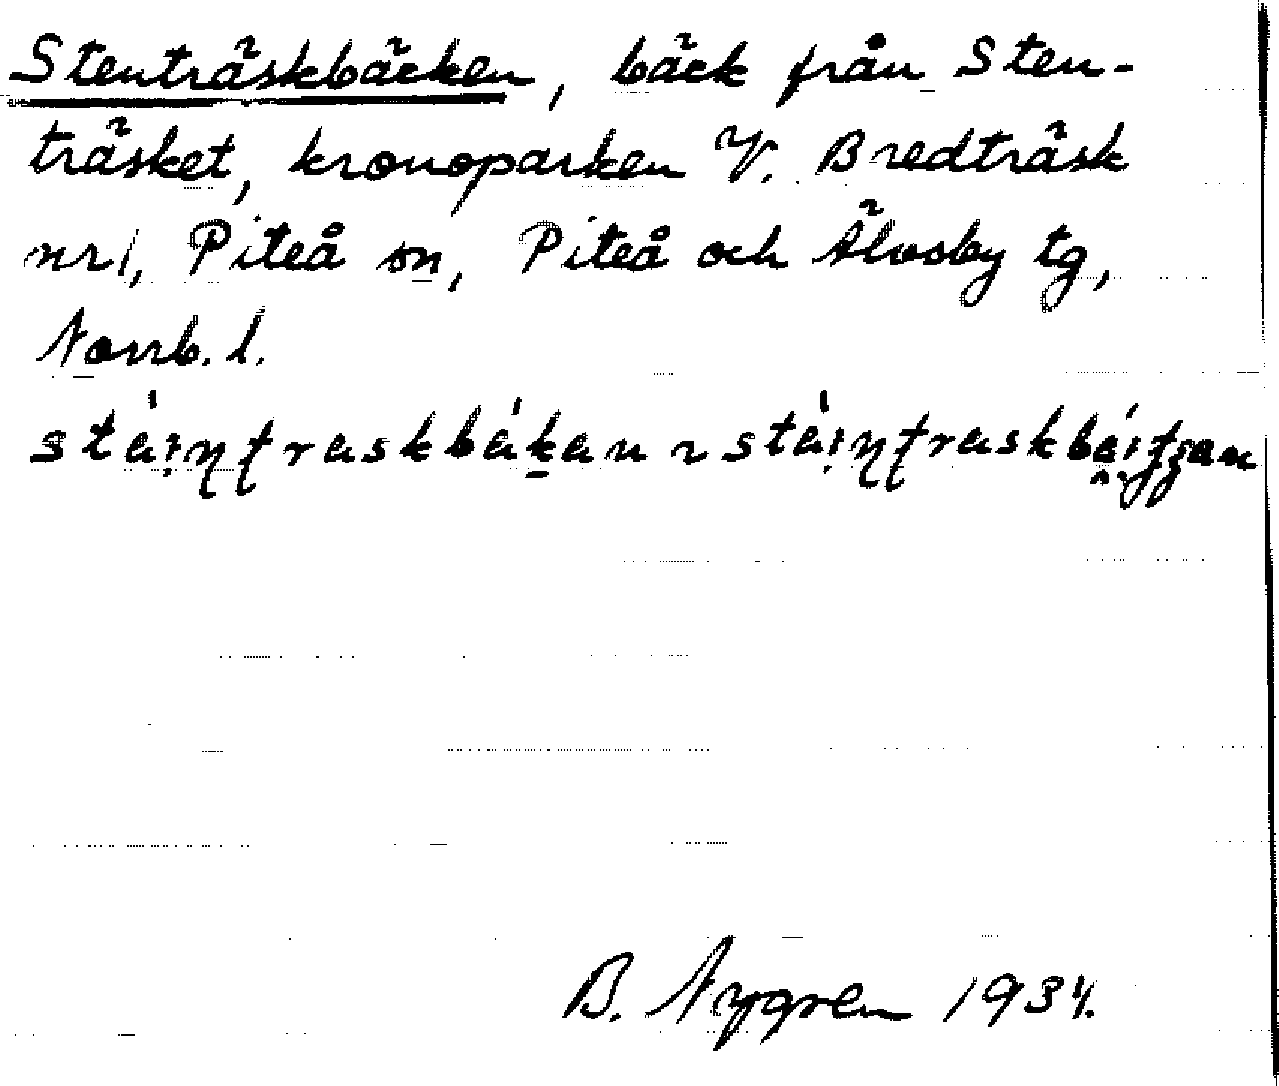 Stenträskbäcken, bäck från Sten-
träsket, kronoparken V. Bredträsk
nr 1, Piteå sn, Piteå och Älvsby tg,
Norrb. l.
B. Nygren 1934.